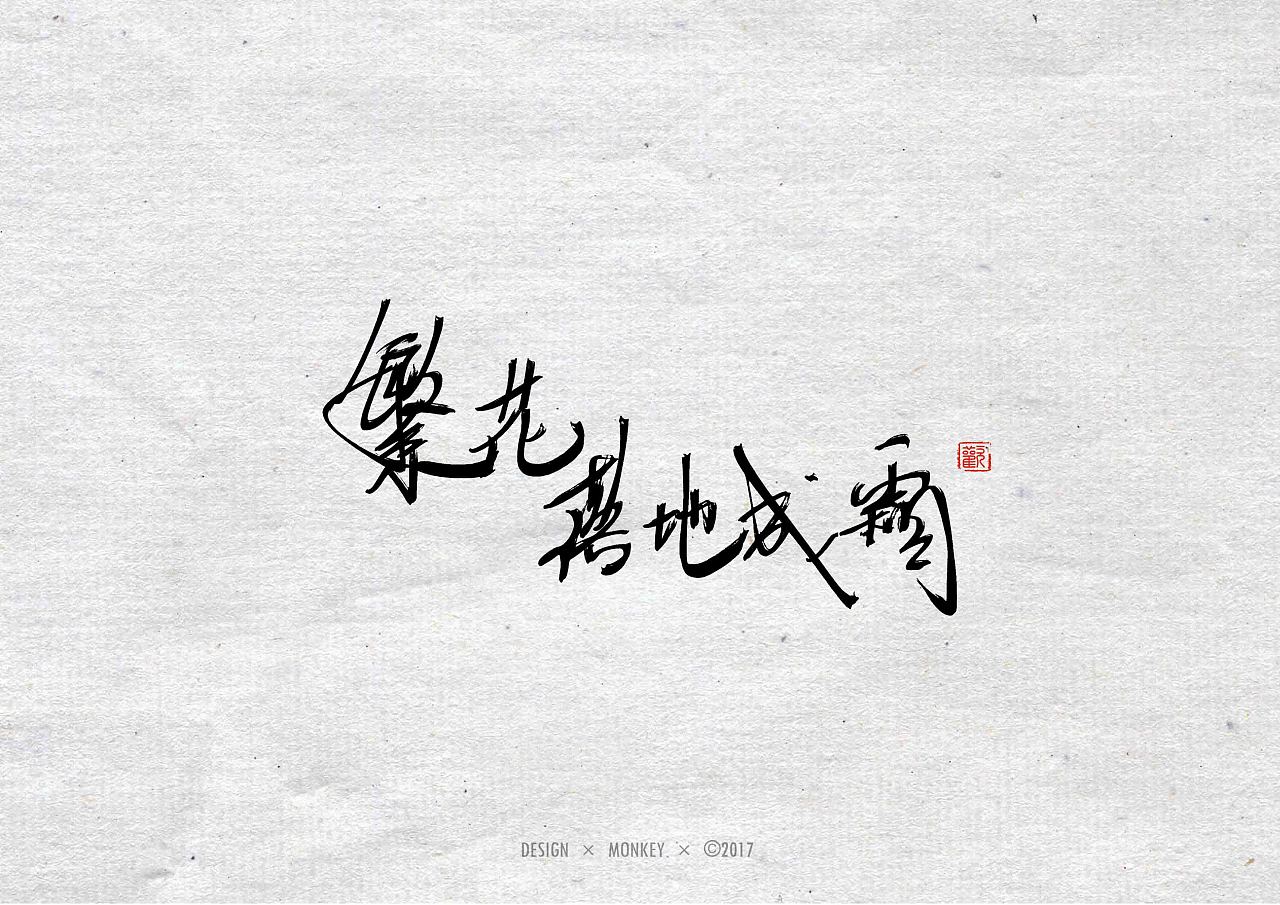 繁花
落地成霜
觀
DESIGN × MONKEY. × ©2017